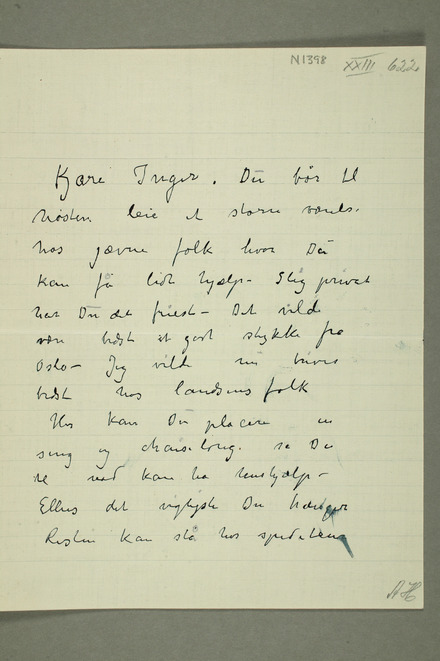 N1398 XXIII 622.
Kjære Inger. Du bør til
høsten leie et større
hos jævne folk hvor Du
kan få lidt hjælp – Slig privat
har Du det friest – Det vild
være bedst et godt stykke fra
Oslo – Jeg vilde nu
bedst hos landsens folk
Her kan Du placere en
seng og chaiselong. så Du
kan ha
Ellers det vigtigste Du
Resten kan stå hos